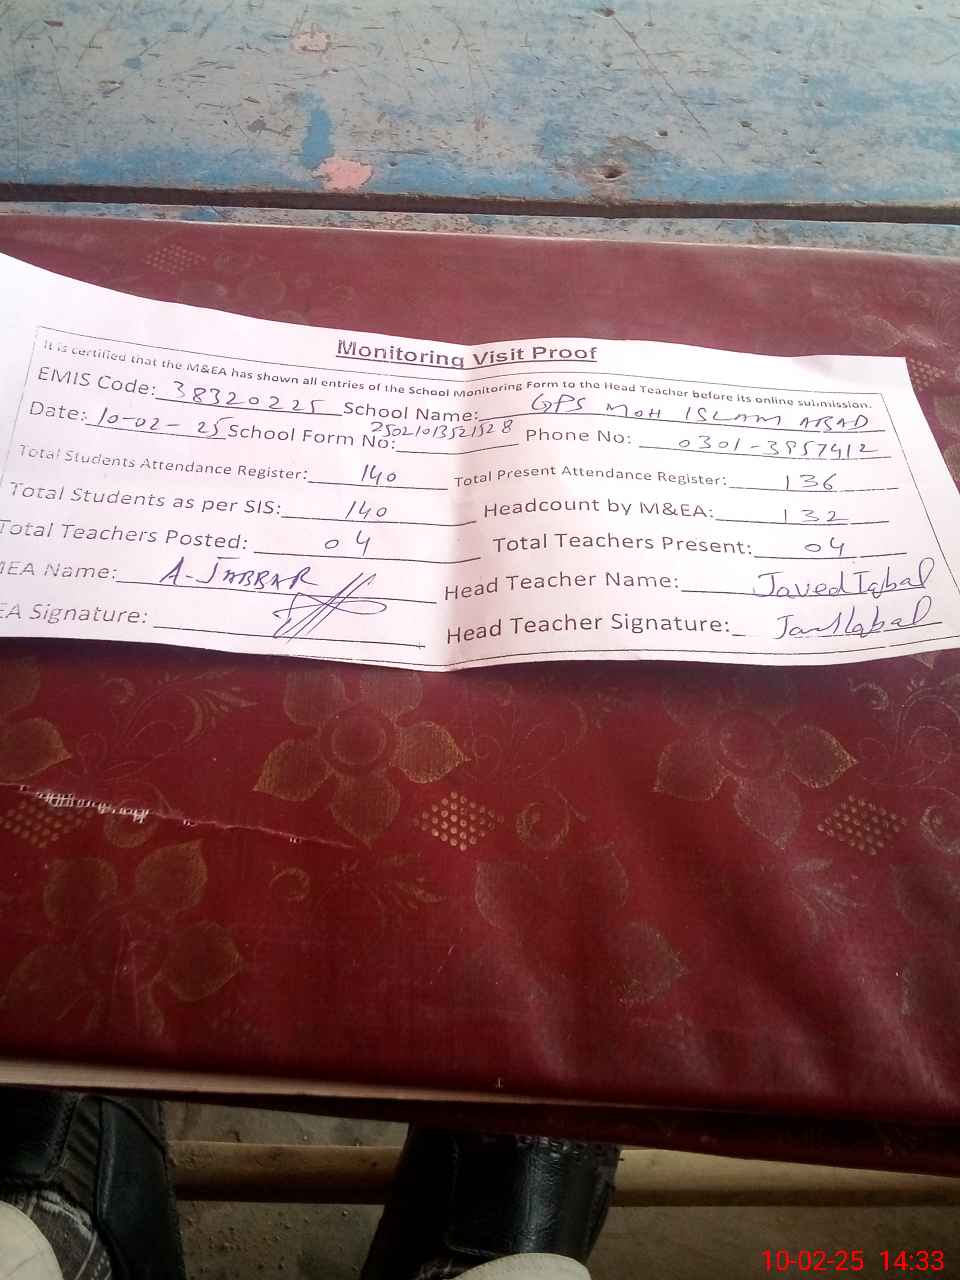 Monitoring Visit Proof
It is certified that the M&EA has shown all entries of the School Monitoring Form to the Head Teacher before its online submission.
EMIS Code: 38320225 School Name: GPS MOH ISLAM ABAD
Date: 10-02-25 School Form No: 25021013521528 Phone No: 0301-3957412
Total Students Attendance Register: 140 Total Present Attendance Register: 136
Total Students as per SIS: 140 Headcount by M&EA: 132
Total Teachers Posted: 04 Total Teachers Present: 04
MEA Name: A-JABBAR Head Teacher Name: Javed Iqbal
EA Signature: Head Teacher Signature: Javed Iqbal
10-02-25 14:33